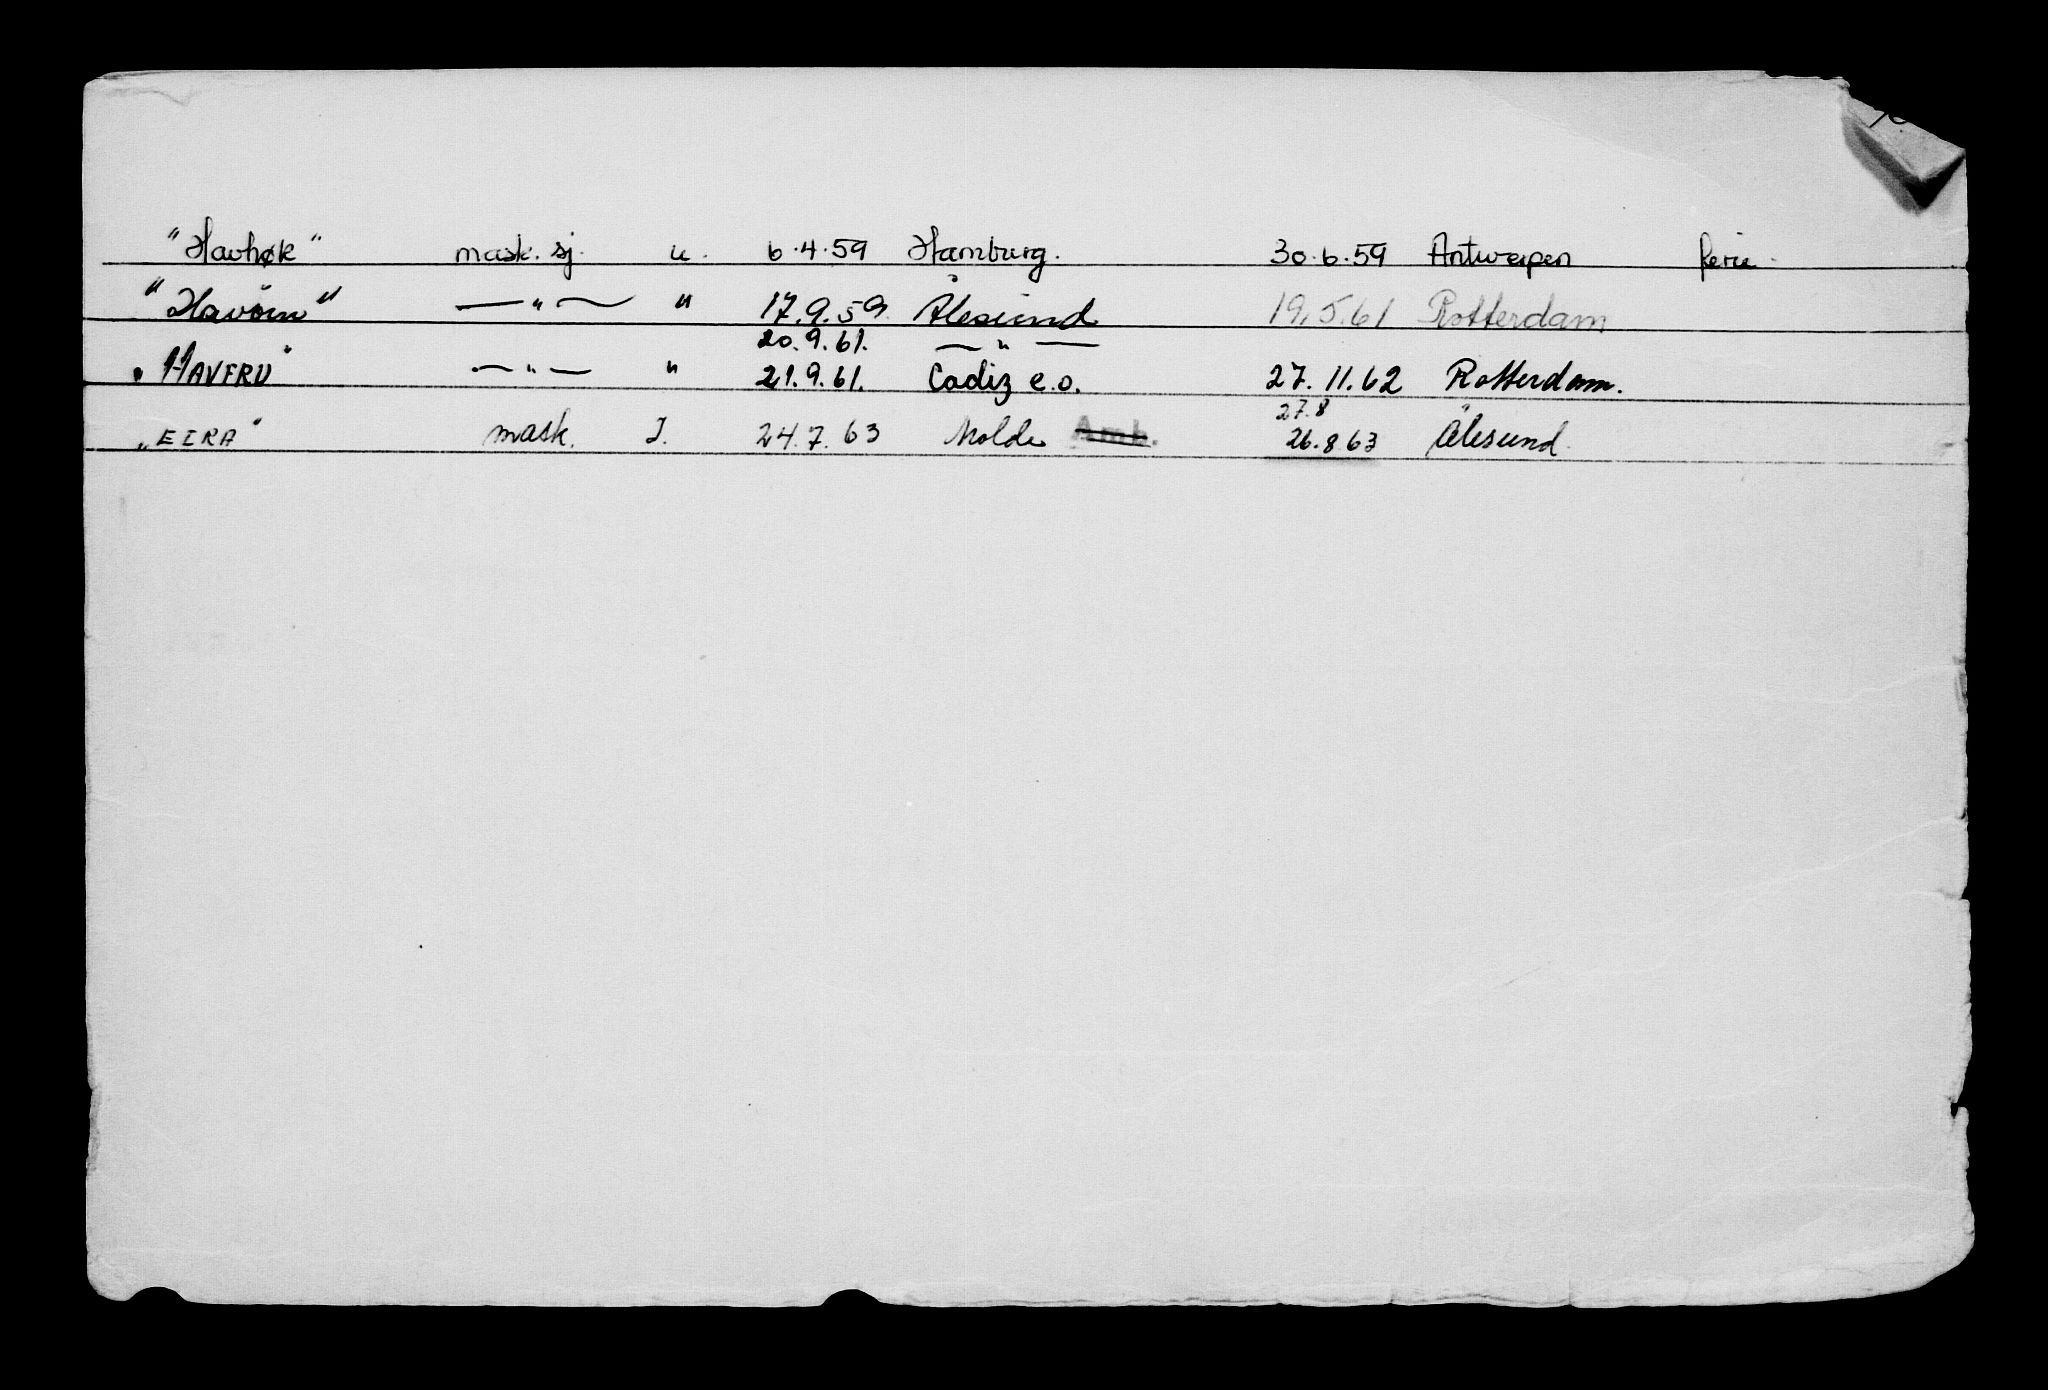 "Havhøk" mask. sj. u. 6.4.59 Hamburg. 30.6.59 Antwerpen ferie.
"Havörn" — " — " 17.9.59 Ålesund 19.5.61 Rotterdam
20.9.61. — " —
"HAVFRU" — " — " 21.9.61. Cadiz e.o. 27.11.62 Rotterdam.
27.8
"EIRA" mask. I. 24.7.63 Molde Amb. 26.8 63 Ålesund.